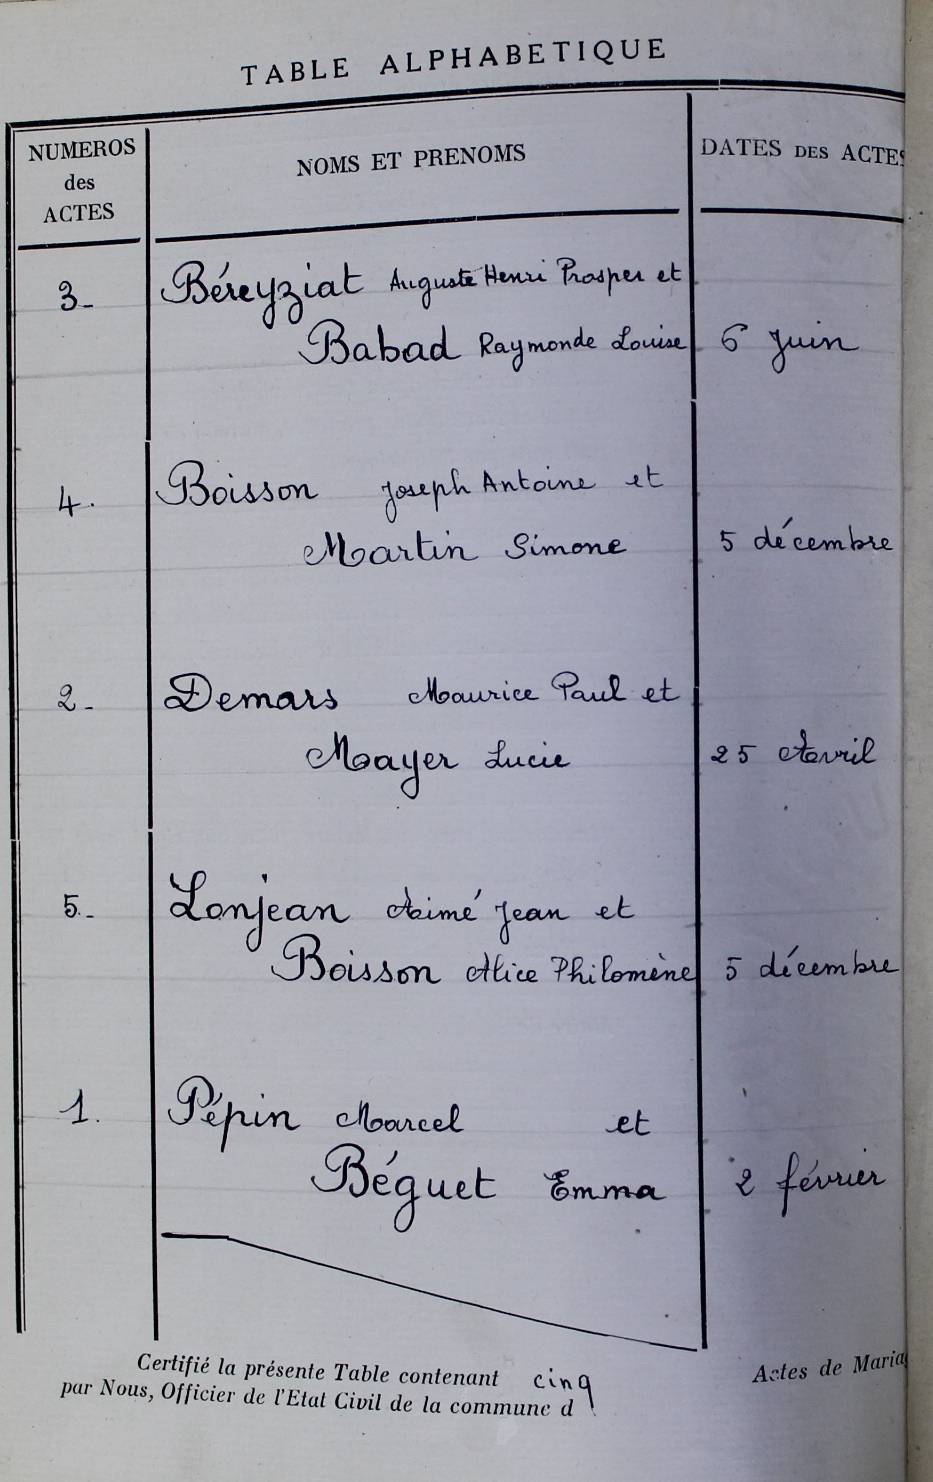 TABLE ALPHABETIQUE
NUMEROS des ACTES
NOMS ET PRENOMS
DATES DES ACTES
3_ Béreyziat Auguste Henri Prosper et
Babad Raymonde Louise 6 Juin
4. Boisson Joseph Antoine et
Martin Simone 5 décembre
2_ Demars Maurice Paul et
Mayer Lucie 25 Avril
5._ Lonjean Aimé Jean et
Boisson Alice Philomène 5 décembre
1. Pépin Marcel et
Béguet Emma 2 février
Certifié la présente Table contenant cinq Actes de Maria
par Nous, Officier de l'Etat Civil de la commune d